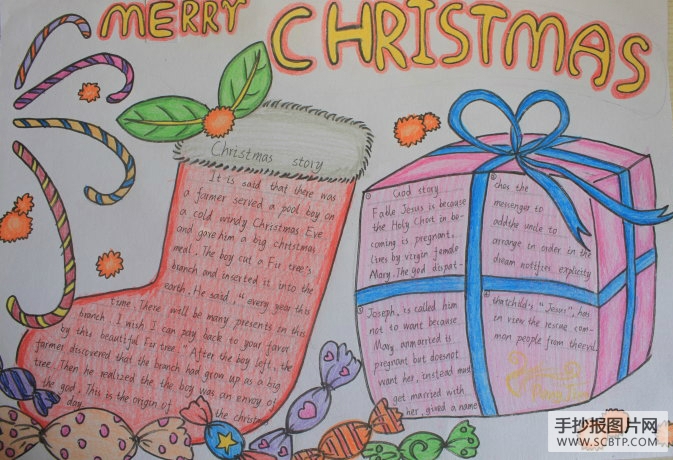 MERRY CHRISTMAS
Christmas story
It is said that there was
a farmer served a pool boy on
a cold windy Christmas Eve
and gave him a big christmas
meal. The boy cut a Fir tree's
branch and inserted it into the
earth. He said, "every year this
time, There will be many presents in this
branch, I wish I can pay back to your favor
by this beautiful Fir tree." After the boy left, the
farmer discovered that the branch had grow up as a big
tree. Then he realized the the boy was an envoy of
the god. This is the origin of the christmas
day.
① God story
Fable Jesus is because
the Holy Ghost in be-
coming is pregnant,
lives by virgin female
Mary. The god dispat-
② chos the
messenger to
addthe unile to
arrange in order in the
dream notifies explicity
③ Joseph, is called him
not to want because
Mary unmarried is
pregnant but doesnot
want her, instead must
get married with
her, gived a name
④ thatchild's "Jesus", has
in view the rescue com-
mon people from theevil.
手抄报图片网
WWW.SCBTP.COM